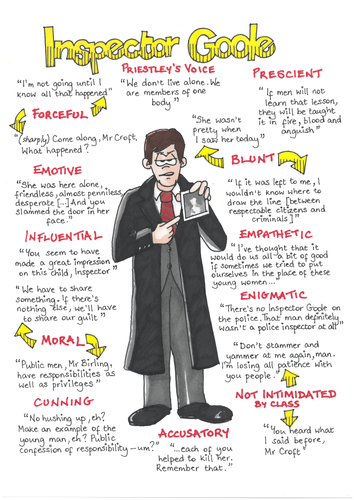 Inspector Goole
PRIESTLEY'S VOICE
"We don't live alone. We
are members of one
body"
PRESCIENT
"If men will
not learn that lesson,
they will be taught
it in fire, blood and
anguish"
"I'm not going until I
know all that happened"
FORCEFUL
"(sharply) Come along, Mr Croft.
What happened?"
"She wasn't
pretty when
I saw her today"
BLUNT
"If it was left to me, I
wouldn't know where to
draw the line [between
respectable citizens and
criminals]"
EMOTIVE
"She was here alone,
friendless, almost penniless,
desperate [...] And you
slammed the door in her
face."
INFLUENTIAL
"You seem to have
made a great impression
on this child, Inspector"
EMPATHETIC
"I've thought that it
would do us all a bit of good
if sometimes we tried to put
ourselves in the place of these
young women..."
ENIGMATIC
"There's no Inspector Goole on
the police. That man definitely
wasn't a police inspector at all"
"We have to share
something. If there's
nothing else, we'll have
to share our guilt"
MORAL
"Public men, Mr Birling,
have responsibilities as
well as privileges"
"Don't stammer and
yammer at me again, man.
I'm losing all patience with
you people."
NOT INTIMIDATED
BY CLASS
"You heard what
I said before,
Mr Croft"
CUNNING
"No hushing up, eh?
Make an example of the
young man, eh? Public
confession of responsibility - um?"
ACCUSATORY
"...each of you
helped to kill her.
Remember that."